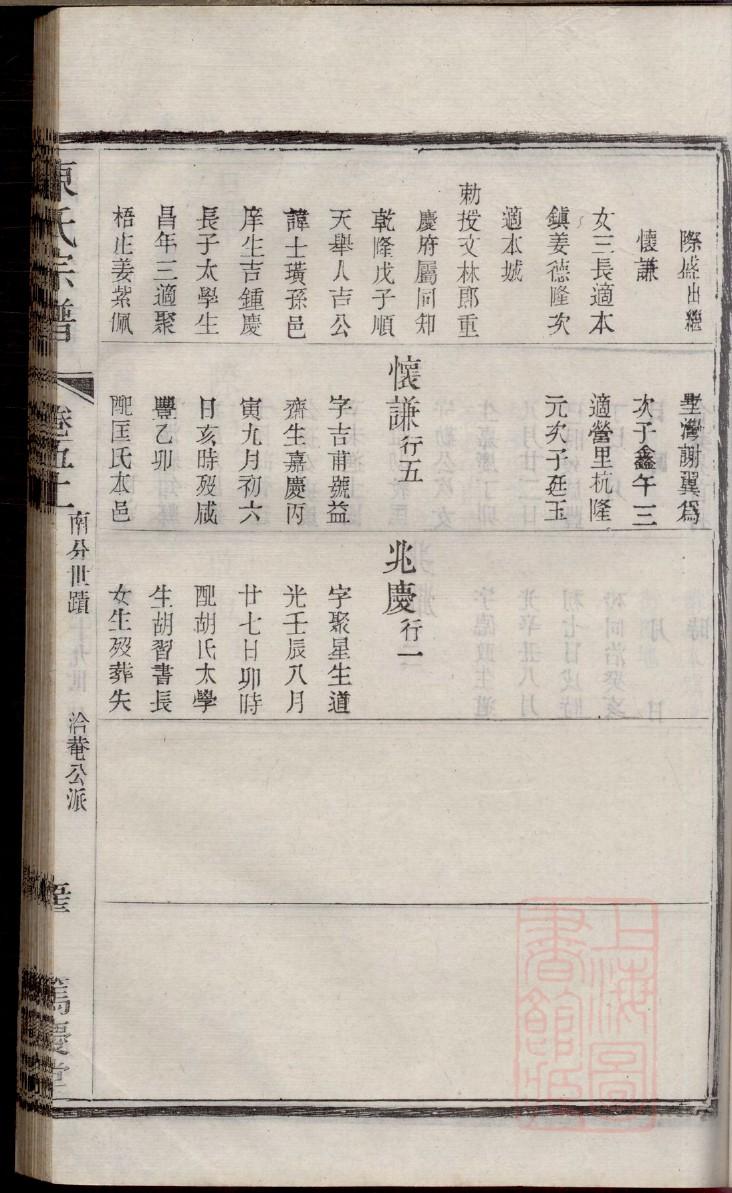 際盛出繼
懷謙
女三長適本
鎮姜德隆次
適本城
勅授文林郎重
慶府屬同知
乾隆戊子順
天舉人吉公
諱士璜孫邑
庠生吉鍾慶
長子太學生
昌年三適聚
梧庄姜紫佩
垩灣謝翼爲
次子鑫午三
適營里杭隆
元次子廷玉
懷謙行五
字吉甫號益
齋生嘉慶丙
寅九月初六
日亥時歿咸
豐乙卯
配匡氏本邑
兆慶行一
字聚星生道
光壬辰八月
廿七日卯時
配胡氏太學
生胡習書長
女生歿葬失
陳氏宗譜
卷五十
南分世蹟
洽菴公派
篤慶堂
上海圖
書館藏